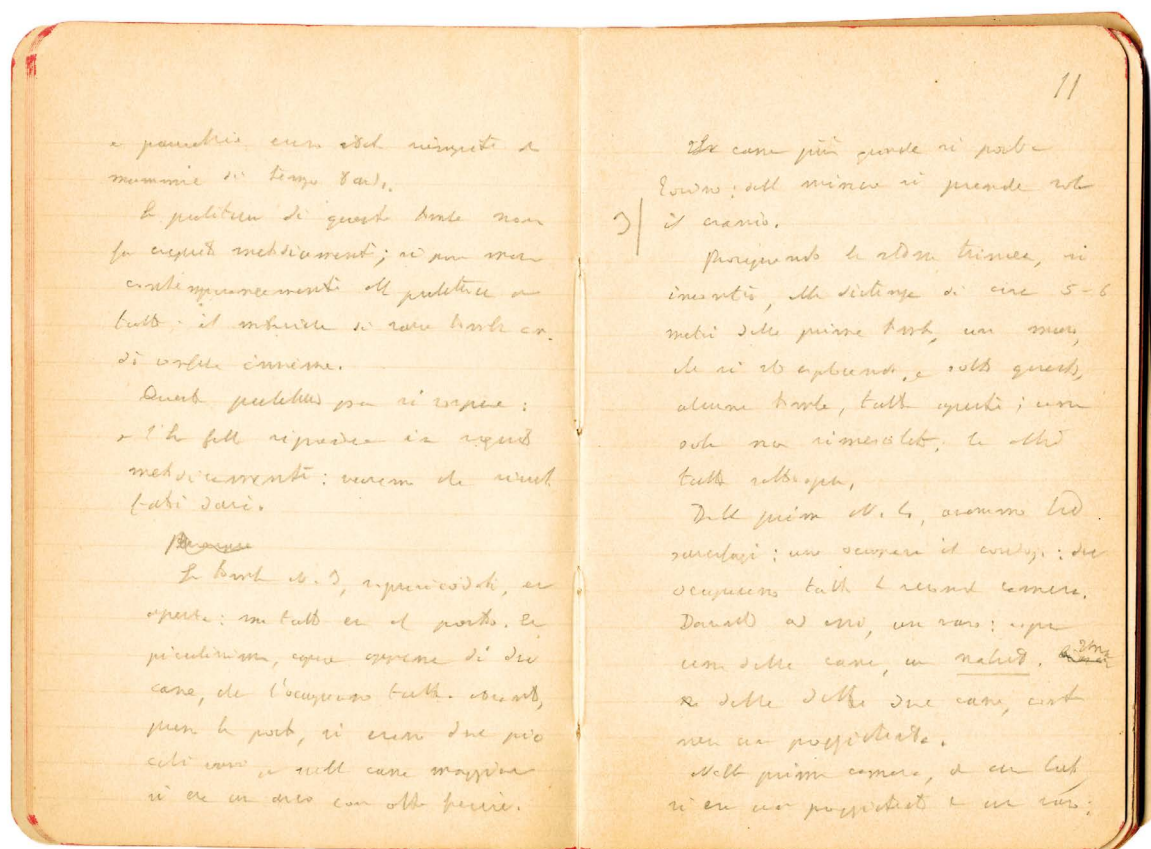 e parecchie
mummie di tempo tardo.
La pulitura di queste tombe non
fu eseguita metodicamente; si può
contemporaneamente alla pulitura
tutte: il materiale di varie tombe
di insieme.
Questa pulitura poi si sospese:
e l'ho fatta riprendere in seguito
metodicamente: vedremo che risul
tati darà.
La tomba N. 3, era
aperta: ma tutto era al posto. Era
piccolissima, capace appena di due
casse, che l'occupavano tutta. Avanti,
presso la porta, vi erano due pic
coli vasi, e nella cassa maggiore
vi era un arco con otto freccie.
11
La cassa più grande si porta a
Torino; della minore si prende solo
3) il cranio.
Proseguendo la stessa trincea, si
incontra, alla distanza di circa 5-6
metri dalle prime tombe, un muro,
che si sta esplorando, e sotto questo,
alcune tombe, tutte aperte; una
sola non rimescolata, le altre
tutte sottosopra.
Dalla prima N. 4, avemmo tre
sarcofagi: uno occupava il corridoio: due
occupavano tutta la seconda camera.
Davanti ad essi, un vaso: sopra
una delle casse, un nahud. Una
delle dette due casse, conte
neva un poggiatesta.
Nella prima camera, da un lato
vi era un poggiatesta e un vaso;